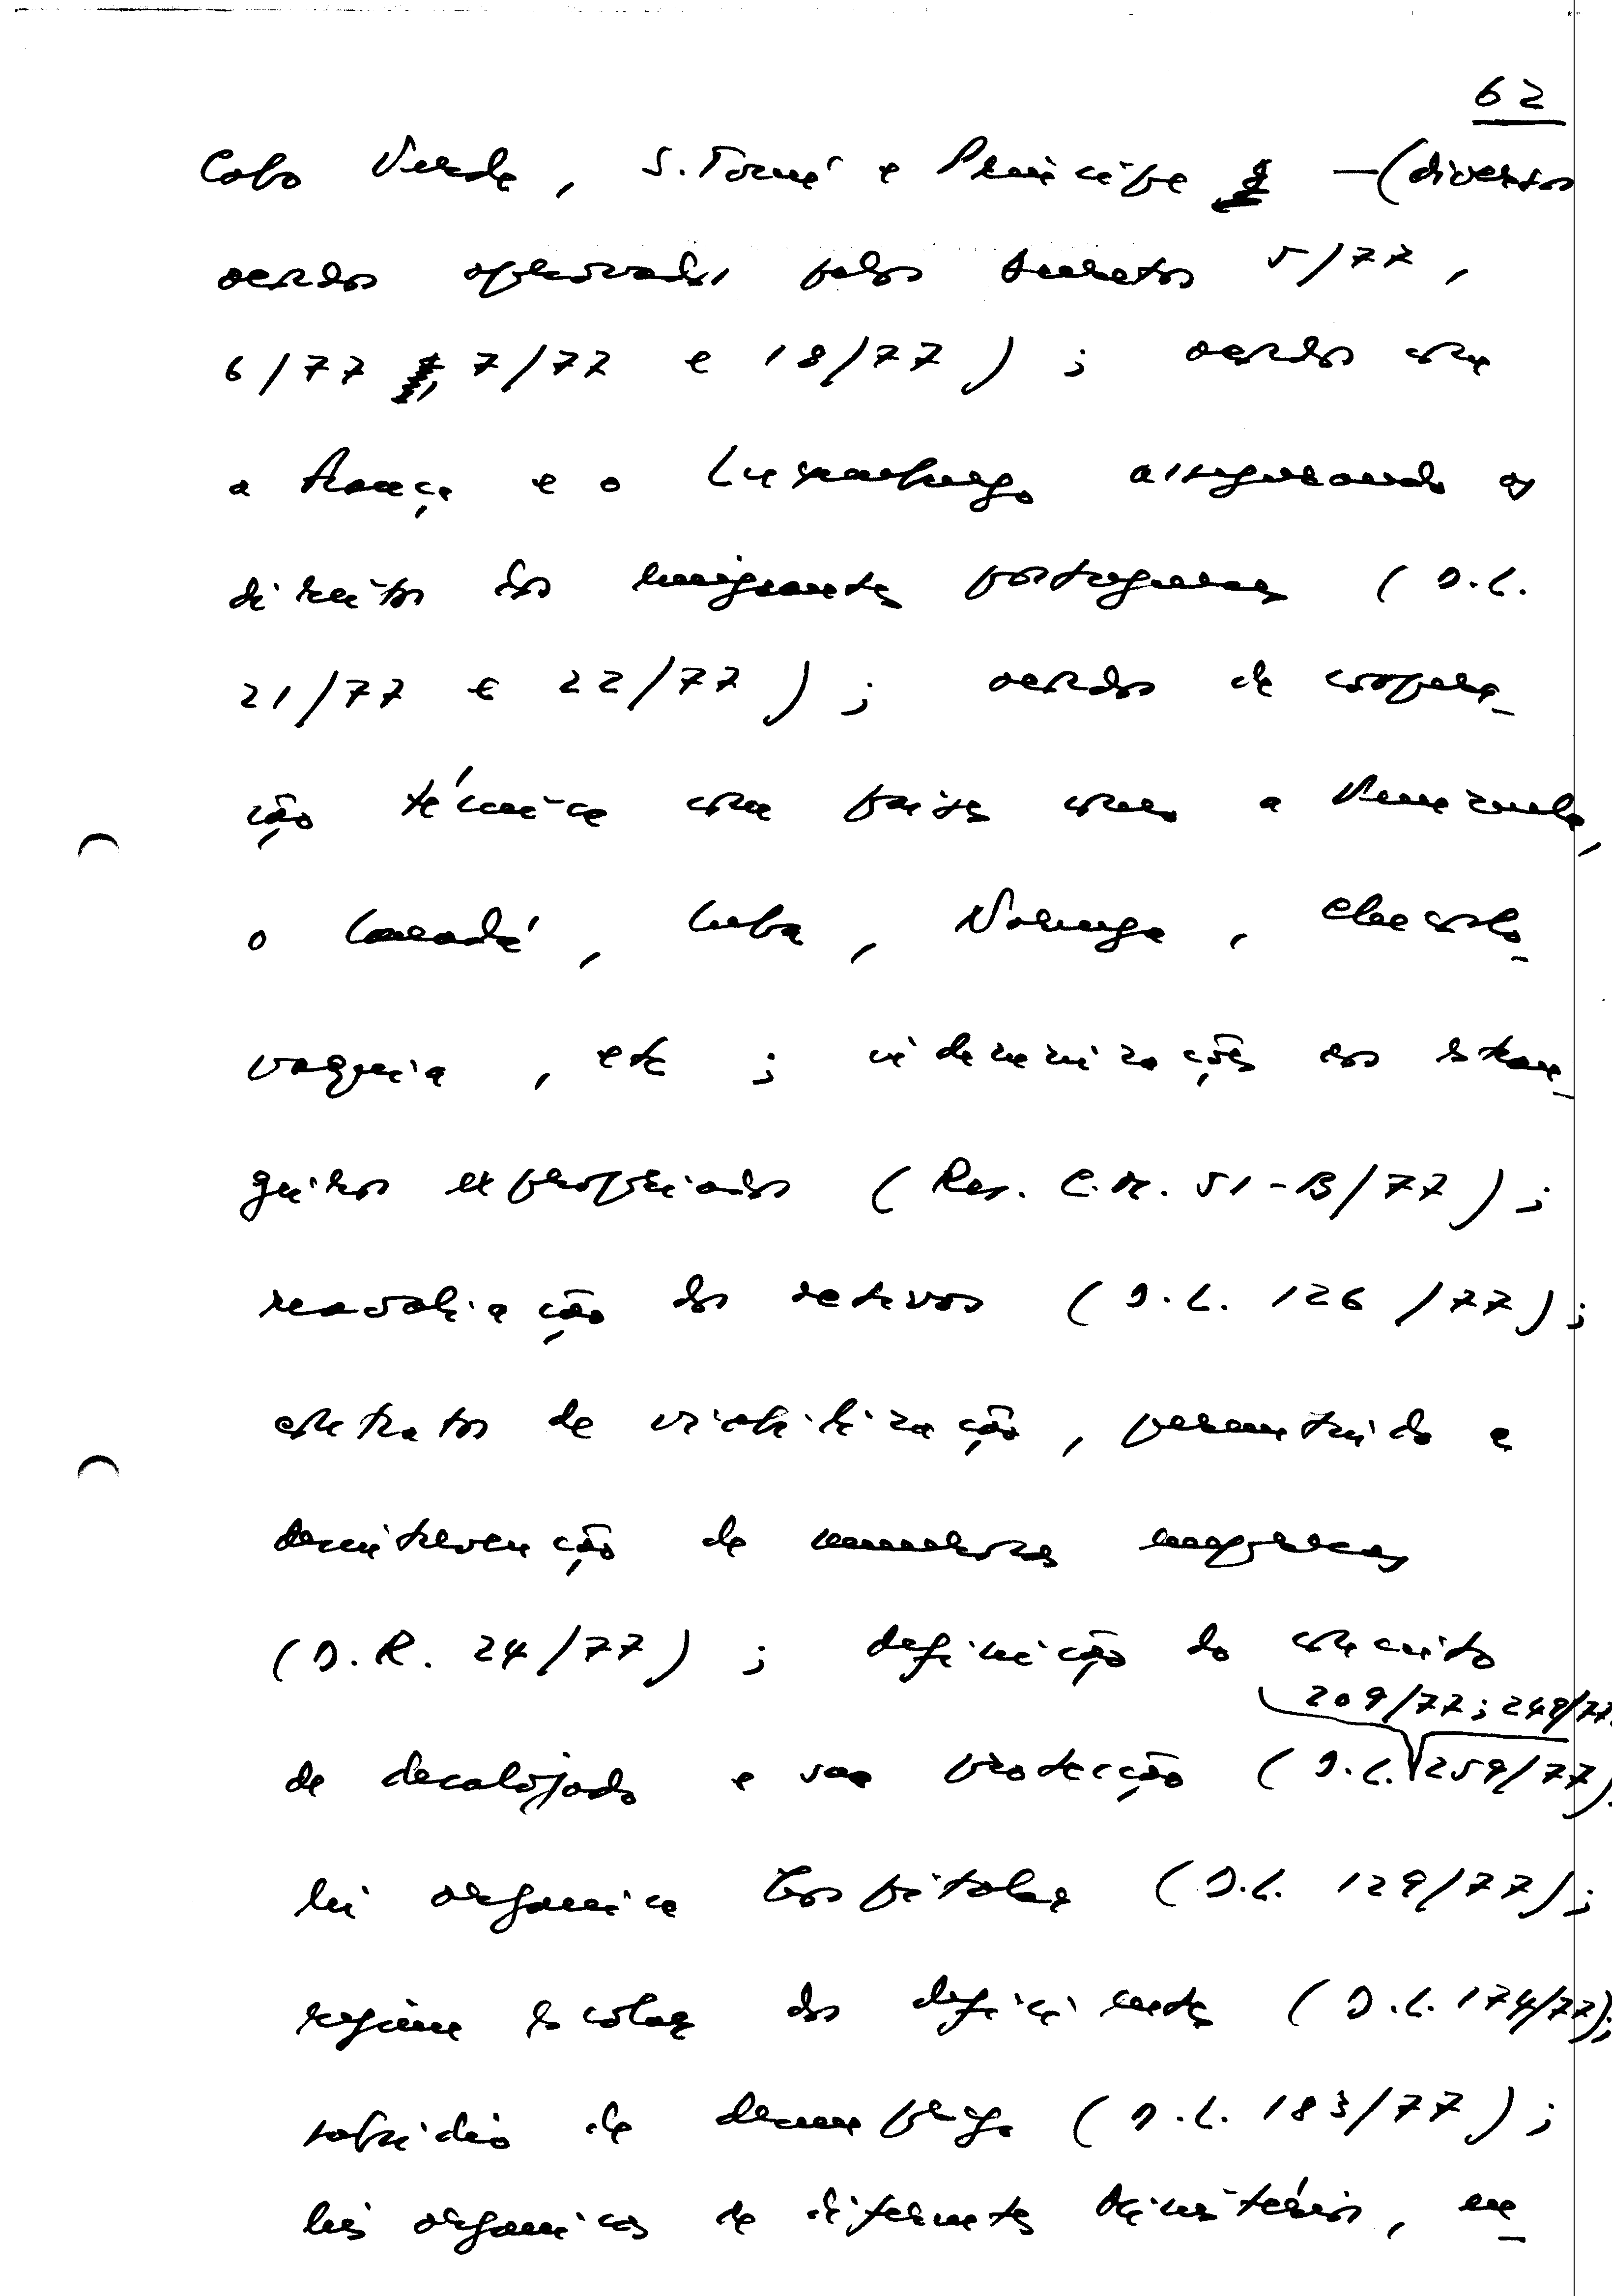 62
Cabo Verde, S. Tomé e Príncipe — (diversos
acordos aprovados pelos decretos 5/77,
6/77, 7/77 e 18/77); acordos com
a França e o Luxemburgo assegurando os
direitos dos emigrantes portugueses (D.L.
21/77 e 22/77); acordos de coopera-
ção técnica com países como a Venezuela,
o Canadá, Cuba, Noruega, Checoslo-
vaquia, etc; indemnizações aos estran-
geiros expropriados (Res. C.M. 51-B/77);
reavaliação dos activos (D.L. 126/77);
contratos de viabilização, permitindo a
desintervenção de numerosas empresas
(D.R. 24/77); definição do conceito
209/77; 249/77
de desalojado e sua protecção (D.L. 259/77);
lei orgânica hospitalar (D.L. 129/77);
regime escolar dos deficientes (D.L. 174/77);
subsídio de desemprego (D.L. 183/77);
leis orgânicas de diferentes Ministérios, en-